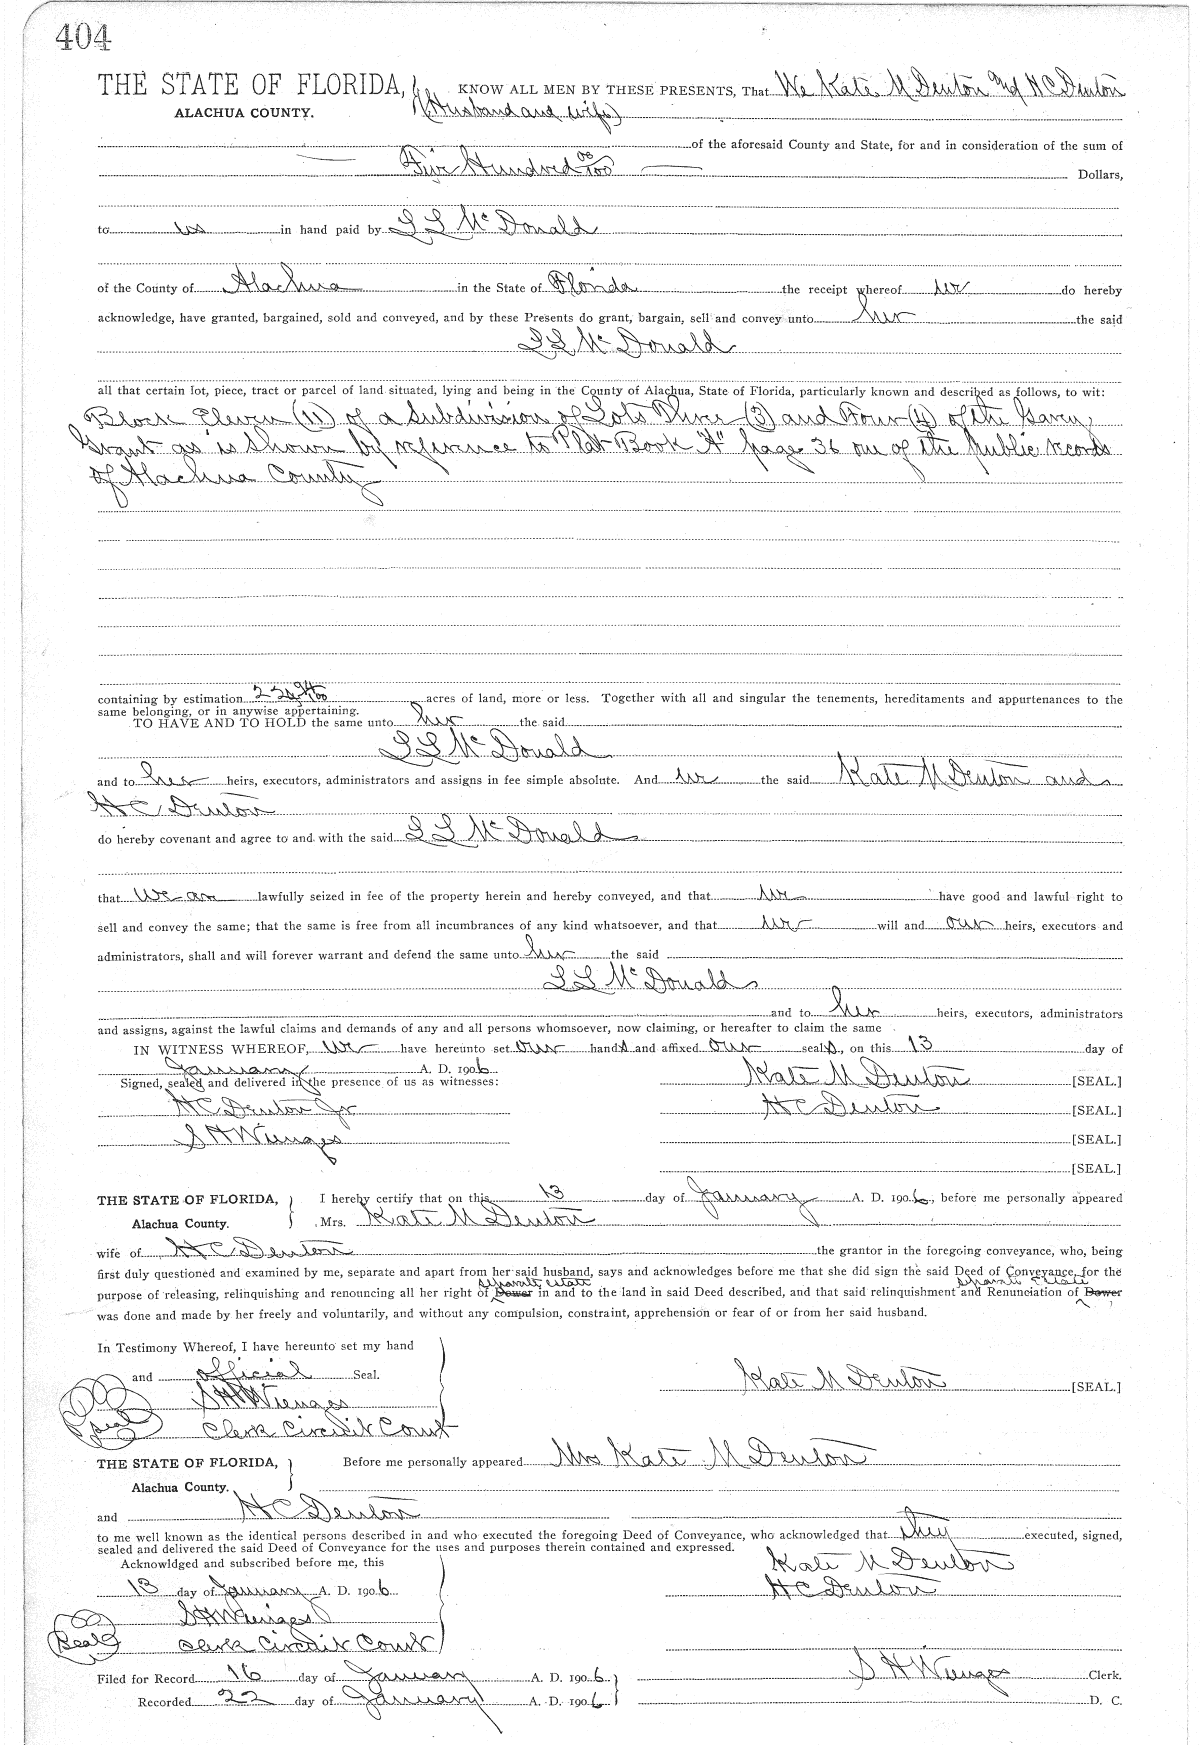 404
THE STATE OF FLORIDA, KNOW ALL MEN BY THESE PRESENTS, That We Kate M Denton and H C Denton
ALACHUA COUNTY. (Husband and wife)
of the aforesaid County and State, for and in consideration of the sum of
Five Hundred 00/100 Dollars,
to us in hand paid by L L McDonald
of the County of Alachua in the State of Florida the receipt whereof we do hereby
acknowledge, have granted, bargained, sold and conveyed, and by these Presents do grant, bargain, sell and convey unto her the said
L L McDonald
all that certain lot, piece, tract or parcel of land situated, lying and being in the County of Alachua, State of Florida, particularly known and described as follows, to wit:
Block Eleven (11) of a Subdivision of Lots Three (3) and Four (4) of the Garey
Grant as is Shown by reference to Plat Book "A" page 36 one of the public records
of Alachua County
containing by estimation acres of land, more or less. Together with all and singular the tenements, hereditaments and appurtenances to the
same belonging, or in anywise appertaining.
TO HAVE AND TO HOLD the same unto her the said
L L McDonald
and to her heirs, executors, administrators and assigns in fee simple absolute. And we the said Kate M Denton and
H C Denton
do hereby covenant and agree to and with the said L L McDonald
that we are lawfully seized in fee of the property herein and hereby conveyed, and that we have good and lawful right to
sell and convey the same; that the same is free from all incumbrances of any kind whatsoever, and that we will and our heirs, executors and
administrators, shall and will forever warrant and defend the same unto her the said
L L McDonald
and to her heirs, executors, administrators
and assigns, against the lawful claims and demands of any and all persons whomsoever, now claiming, or hereafter to claim the same
IN WITNESS WHEREOF, we have hereunto set our hands and affixed our seals, on this 13 day of
January A. D. 1906 Kate M Denton [SEAL.]
Signed, sealed and delivered in the presence of us as witnesses:
H C Denton Jr H C Denton [SEAL.]
S H Wienges [SEAL.]
[SEAL.]
THE STATE OF FLORIDA, I hereby certify that on this 13 day of January A. D. 1906, before me personally appeared
Alachua County. Mrs. Kate M Denton
wife of H C Denton the grantor in the foregoing conveyance, who, being
first duly questioned and examined by me, separate and apart from her said husband, says and acknowledges before me that she did sign the said Deed of Conveyance, for the
separate estate separate estate
purpose of releasing, relinquishing and renouncing all her right of Dower in and to the land in said Deed described, and that said relinquishment and Renunciation of Dower
was done and made by her freely and voluntarily, and without any compulsion, constraint, apprehension or fear of or from her said husband.
In Testimony Whereof, I have hereunto set my hand
and official Seal. Kate M Denton [SEAL.]
S H Wienges
Seal Clerk Circuit Court
THE STATE OF FLORIDA, Before me personally appeared Mrs Kate M Denton
Alachua County.
and H C Denton
to me well known as the identical persons described in and who executed the foregoing Deed of Conveyance, who acknowledged that they executed, signed,
sealed and delivered the said Deed of Conveyance for the uses and purposes therein contained and expressed.
Acknowldged and subscribed before me, this Kate M Denton
13 day of January A. D. 1906 H C Denton
S H Wienges
Seal Clerk Circuit Court
Filed for Record 16 day of January A. D. 1906 S H Wienges Clerk.
Recorded 22 day of January A. D. 1906 D. C.